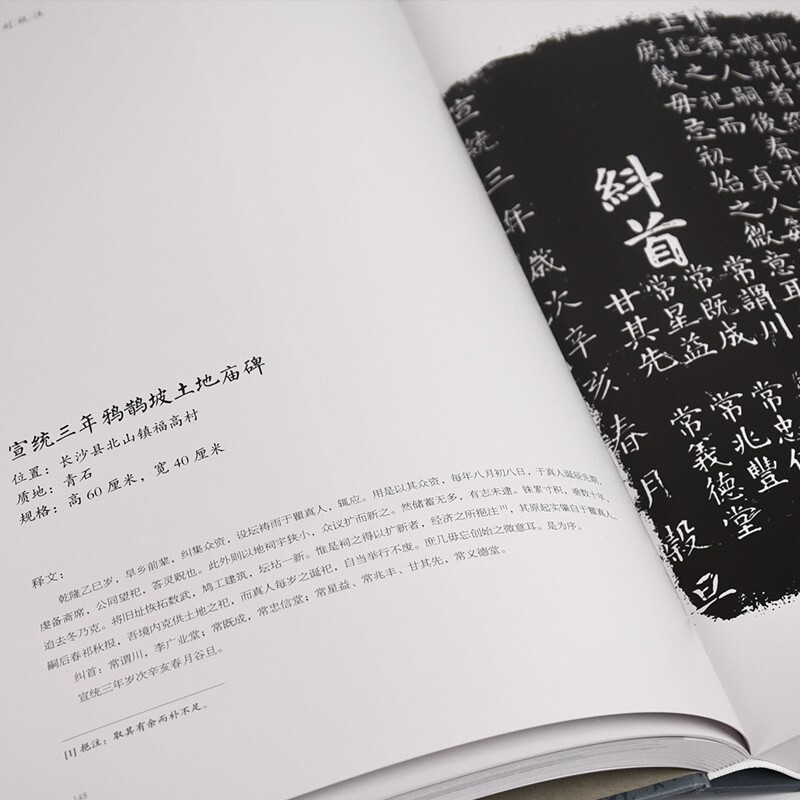 宣统三年鸦鹊坡土地庙碑
位置：长沙县北山镇福高村
质地：青石
规格：高60厘米，宽40厘米
释文：
乾隆乙巳岁，旱乡前辈，纠集众资，设坛祷雨于瞿真人，辄应。用是以其众资，每年八月初八日，于真人诞辰先期，
虔备斋席，公同望祀，答灵贶也。此外则以地祠宇狭小，众议扩而新之。然储蓄无多，有志未逮。铢累寸积，垂数十年，
迨去冬乃克。将旧址恢拓数武，鸠工建筑，坛坫一新。惟是祠之得以扩新者，经济之所挹注[1]，其原起实肇自于瞿真人。
嗣后春祁秋报，吾境内克供土地之祀，而真人每岁之诞祀，自当举行不废。庶几毋忘创始之微意耳。是为序。
纠首：常谓川，李广业堂；常既成，常忠信堂；常星益、常兆丰、甘其先，常义德堂。
宣统三年岁次辛亥春月谷旦。
[1] 挹注：取其有余而补不足。
148
新者
後春
真人
擴
人嗣
真
之祀而
土地
毋忘刱始之微意耳
庶幾
常謂川
常既成
常星益
甘其先
糾首
常忠
常兆豐
常義德堂
宣統三年歲次辛亥春月穀旦